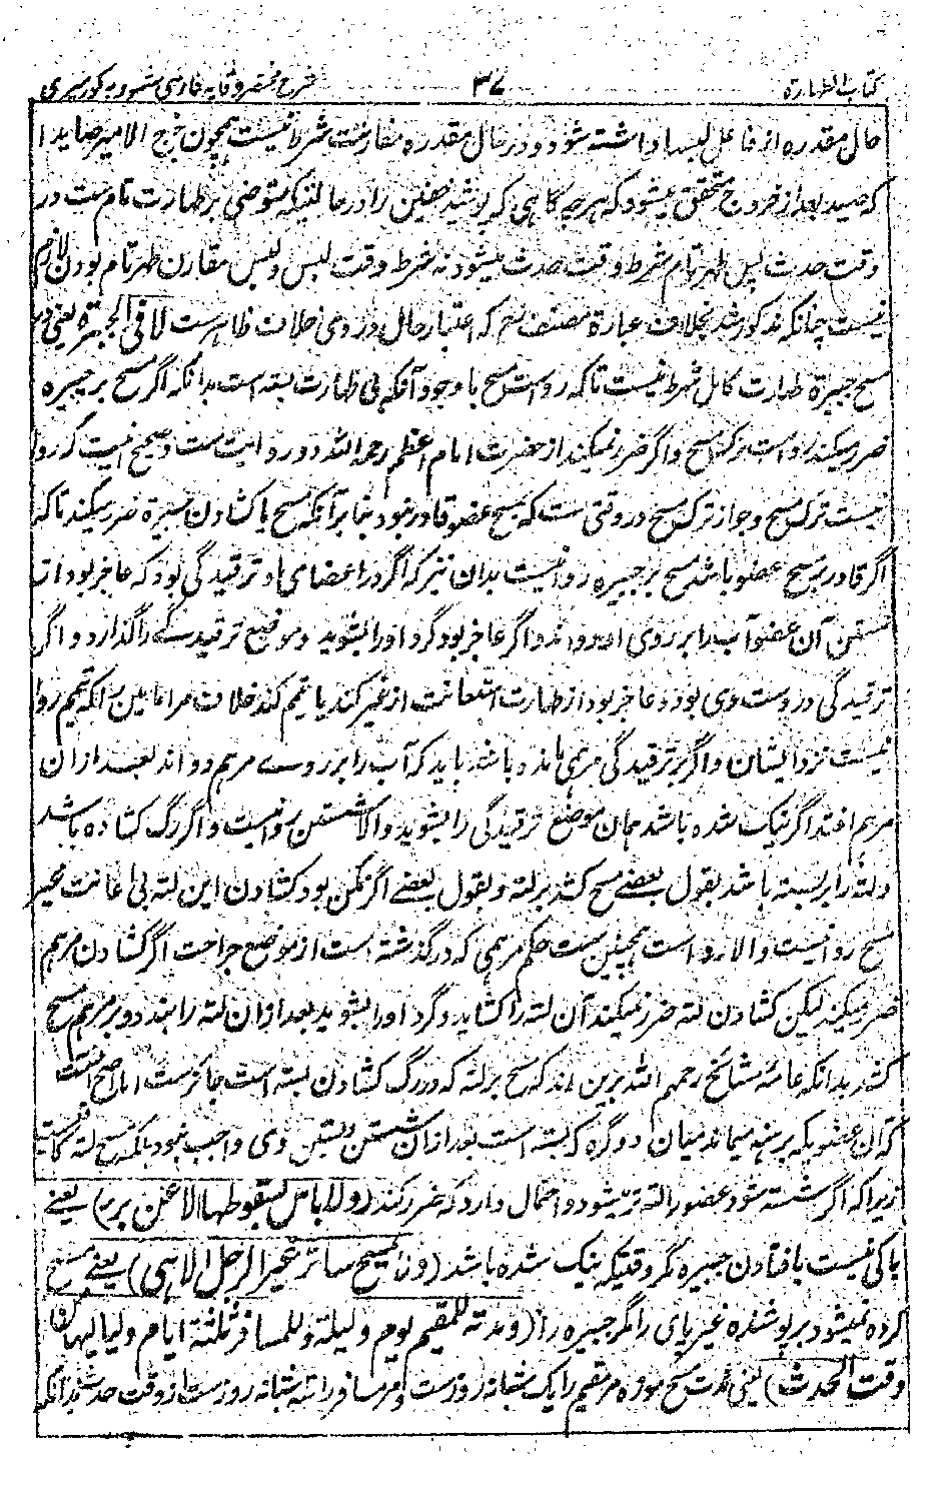 کتاب الطهارة ۳۷ شرح مختصر وقایه فارسی مشهور به کور میری
حال مقدره از فاعل لبسا داشته شود و در حال مقدره مقارنت شرط نیست همچون خرج الامیر صایدا
که صید بعد از خروج متحقق میشود که هر چه گاهی که پوشید خفین را در حالتیکه متوضی بر طهارت تام ست در
وقت حدث پس طهر تام شرط وقت حدث میشود نه شرط وقت لبس و لبس مقارن طهر تام بودن لازم
نیست چنانکه مذکور شد بخلاف عبارة مصنف رحم که اعتبار حال در وی خلاف ظاهر ست لا فی الجبیرة یعنی در
مسح جبیرة طهارت کامل شرط نیست تا که رواست مسح با وجود آنکه بی طهارت بسته است بدانکه اگر مسح بر جبیره
ضرر میکند رواست ترک مسح و اگر ضرر نمیکند از حضرت امام اعظم رحمه الله دو روایت ست و صحیح اینست که روا
نیست ترک مسح و جواز ترک مسح در وقتی ست که بمسح عضو قادر نبود بنا بر آنکه مسح یا کشادن جبیرة ضرر میکند تا که
اگر قادر بمسح عضو باشد مسح بر جبیره روا نیست بدان نیز که اگر در اعضای او ترقیدگی بود که عاجز بود از
شستن آن عضو آب را بر روی او رواند و اگر عاجز بود گرد او را بشوید و موضع ترقیدگی را گذارد و اگر
ترقیدگی در دست وی بود و عاجز بود از طهارت استعانت از غیر کند یا تیمم کند خلاف مر امامین را که تیمم روا
نیست نزد ایشان و اگر بر ترقیدگی مرهم مانده باشد باید که آب را بر روے مرهم دواند بعد از ان
مرهم افتد اگر نیک شده باشد همان موضع ترقیدگی را بشوید و الا شستن روا نیست و اگر رگ کشاده باشد
و لته را بر بسته باشد بقول بعضے مسح کند بر لته و بقول بعضے اگر ممکن بود کشادن این لته بی اعانت غیر
مسح روا نیست و الا رواست همچنین ست حکم مرهمی که در گذشته است از موضع جراحت اگر کشادن مرهم
ضرر میکند لیکن کشادن لته ضرر نمیکند آن لته را کشاید و گرد او را بشوید بعد از ان لته را بندد و بر مرهم مسح
کند بدانکه عامه مشائخ رحمهم الله برین اند که مسح بر لته که در رگ کشادن بسته است جائز ست اما اصح اینست
که آن عضویکه برهنه میماند میان دو گره که بسته است بعد از ان شستن و بستن وی واجب نبود بلکه مسح لته کافیست
زیرا که اگر شسته شود عضو را لته تر میشود و احتمال دارد که ضرر کند (ولا باس بسقوطها الا عن برء) یعنے
باکی نیست با فتادن جبیره مگر وقتیکه نیک شده باشد (ولا یمسح ساتر غیر الرجل الا هی) یعنے مسح
کرده نمیشود بر پوشنده غیر پای را مگر جبیره را (ومدته للمقیم یوم ولیلة وللمسافر ثلثة ایام ولیالیها من
وقت الحدث) یعنی مدت مسح موزه مر مقیم را یک شبانه روز ست و مر مسافر را سه شبانه روز ست از وقت حدث بدانکه